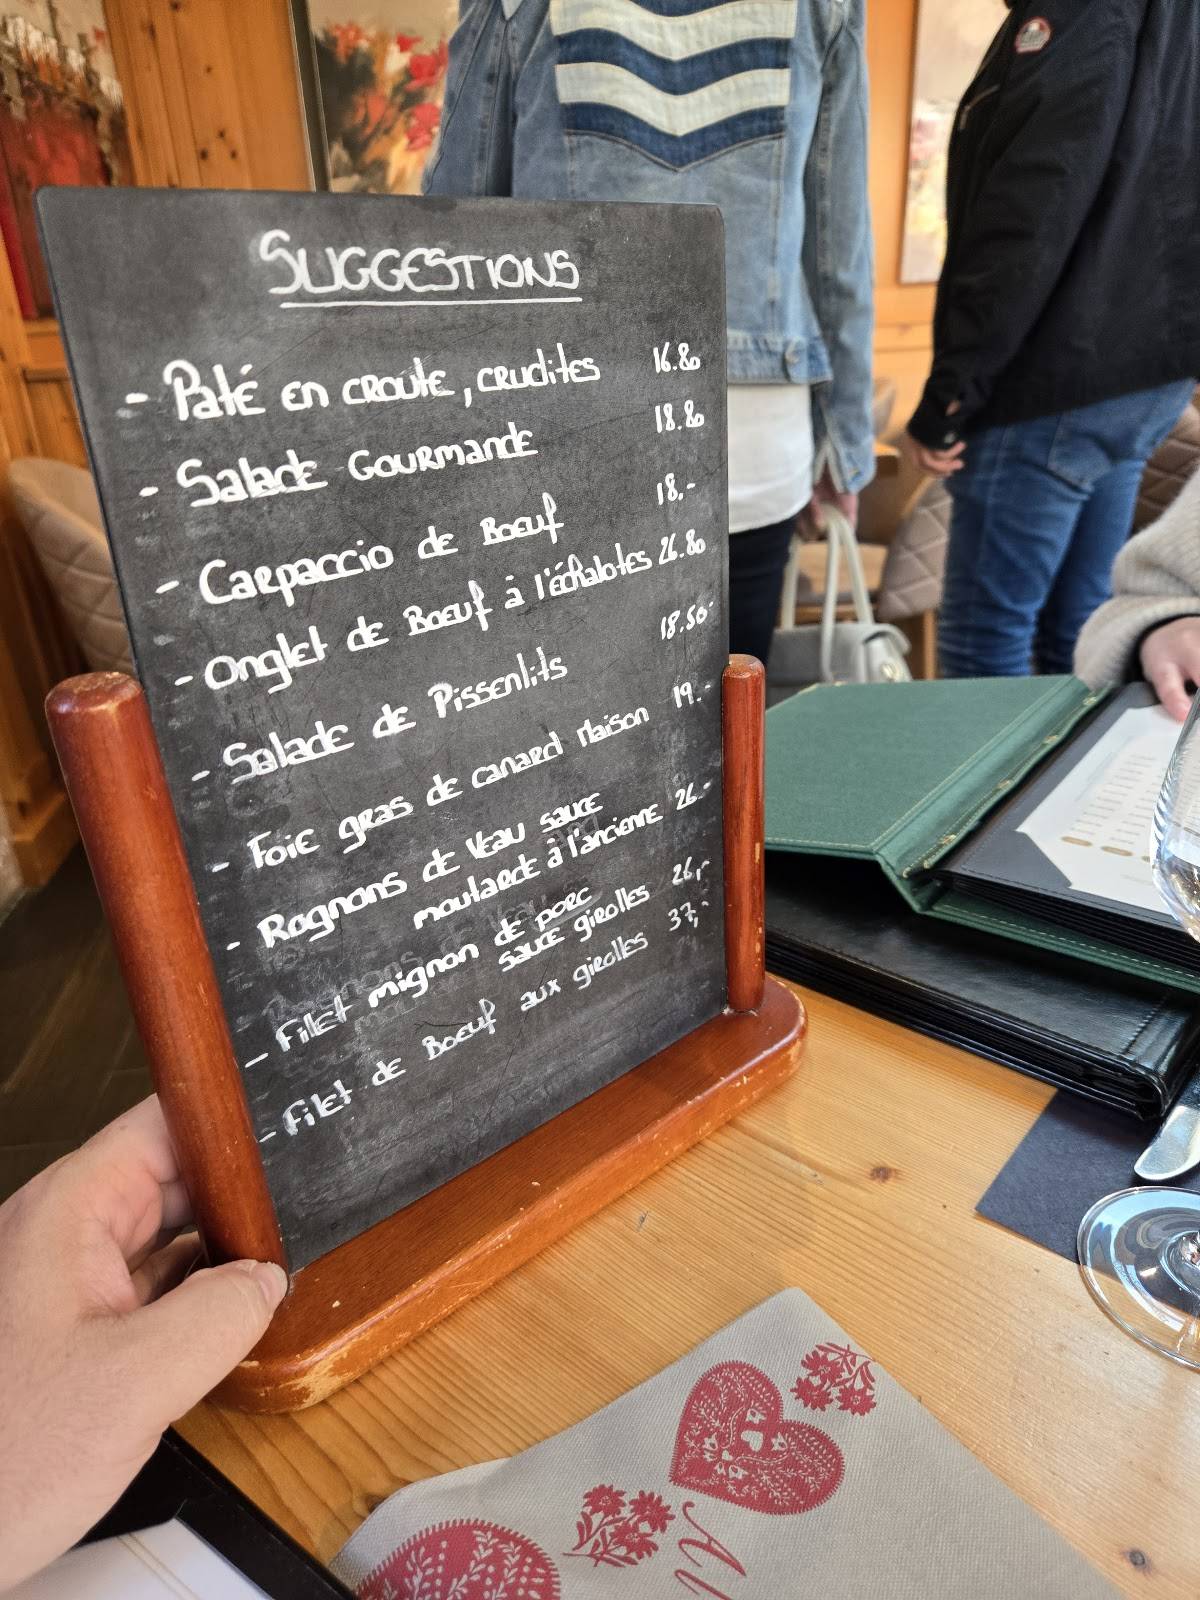 SUGGESTIONS
- Paté en croute, crudites 16.80
- Salade Gourmande 18.80
- Carpaccio de Boeuf 18.-
- Onglet de Boeuf à l'échalotes 26.80
- Salade de Pissenlits 18.50-
- Foie gras de canard Maison 19.-
- Rognons de Veau sauce
moutarde à l'ancienne 26.-
- Filet mignon de porc
sauce girolles 26,-
- Filet de Boeuf aux girolles 37,-